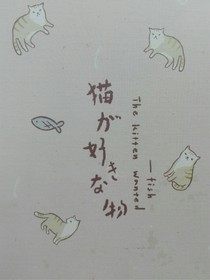 猫が好きな物
The kitten wanted
—fish